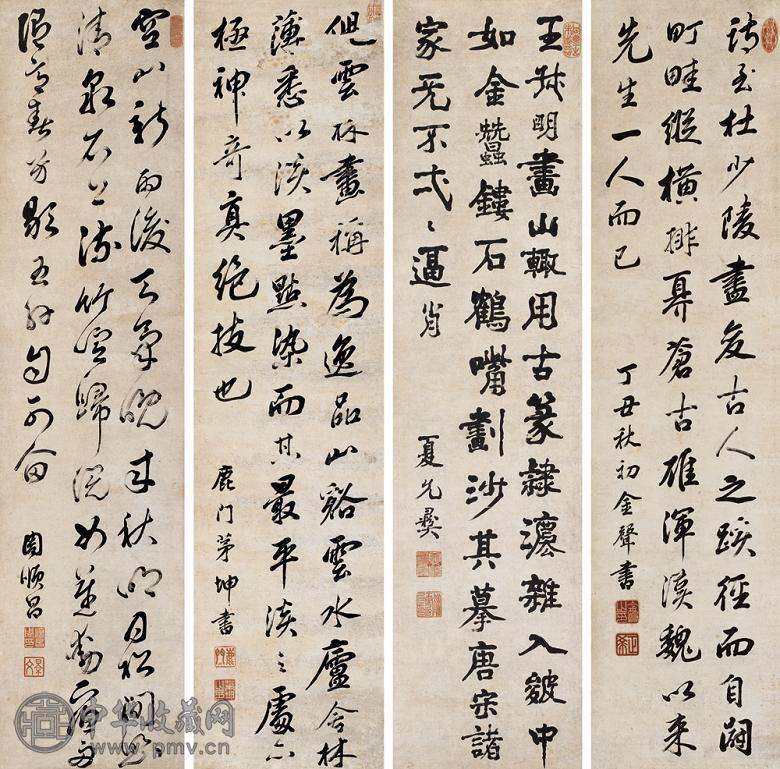 诗至杜少陵尽变古人之蹊径而自辟
町畦纵横排奡苍古雄浑汉魏以来
先生一人而已
丁丑秋初金聲書
王叔明畫山輙用古篆隸灋雜入皴中
如金蠶鏤石鶴嘴劃沙其摹唐宋諸
家无不弍弍逼肖
夏允彝
倪雲林畫稱為逸品山谿雲水廬舍林
薄悉以淡墨點染而其最平淡之處亦
極神奇真絶技也
鹿门茅坤書
空山新雨後天氣晚来秋明月松間照
清泉石上流竹喧歸浣女蓮動漁舟
随意春芳歇王孫自可留
周順昌
中华收藏网
www.pmv.cn